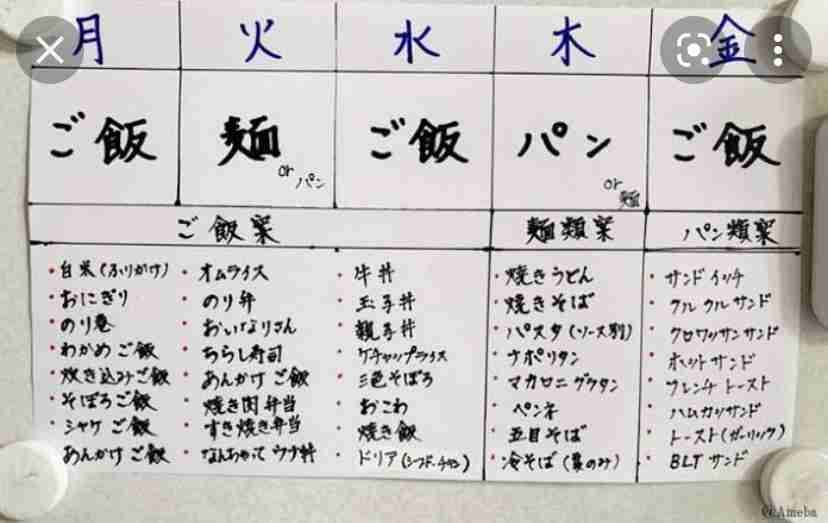 月 火 水 木 金
ご飯 麺 or パン ご飯 パン or 麺 ご飯
ご飯案 麺類案 パン類案
・白米(ふりかけ) ・オムライス ・牛丼 ・焼きうどん ・サンドイッチ
・おにぎり ・のり弁 ・玉子丼 ・焼きそば ・クルクルサンド
・のり巻 ・おいなりさん ・親子丼 ・パスタ(ソース別) ・クロワッサンサンド
・わかめご飯 ・ちらし寿司 ・ケチャップライス ・ナポリタン ・ホットサンド
・炊き込みご飯 ・あんかけご飯 ・三色そぼろ ・マカロニグラタン ・フレンチトースト
・そぼろご飯 ・焼き肉弁当 ・おこわ ・ペンネ ・ハムカツサンド
・シャケご飯 ・すき焼き弁当 ・焼き飯 ・五目そば ・トースト(ガーリック)
あんかけご飯 ・なんちゃってウナ丼 ・ドリア ・冷そば(夏のみ) ・BLTサンド
Ameba